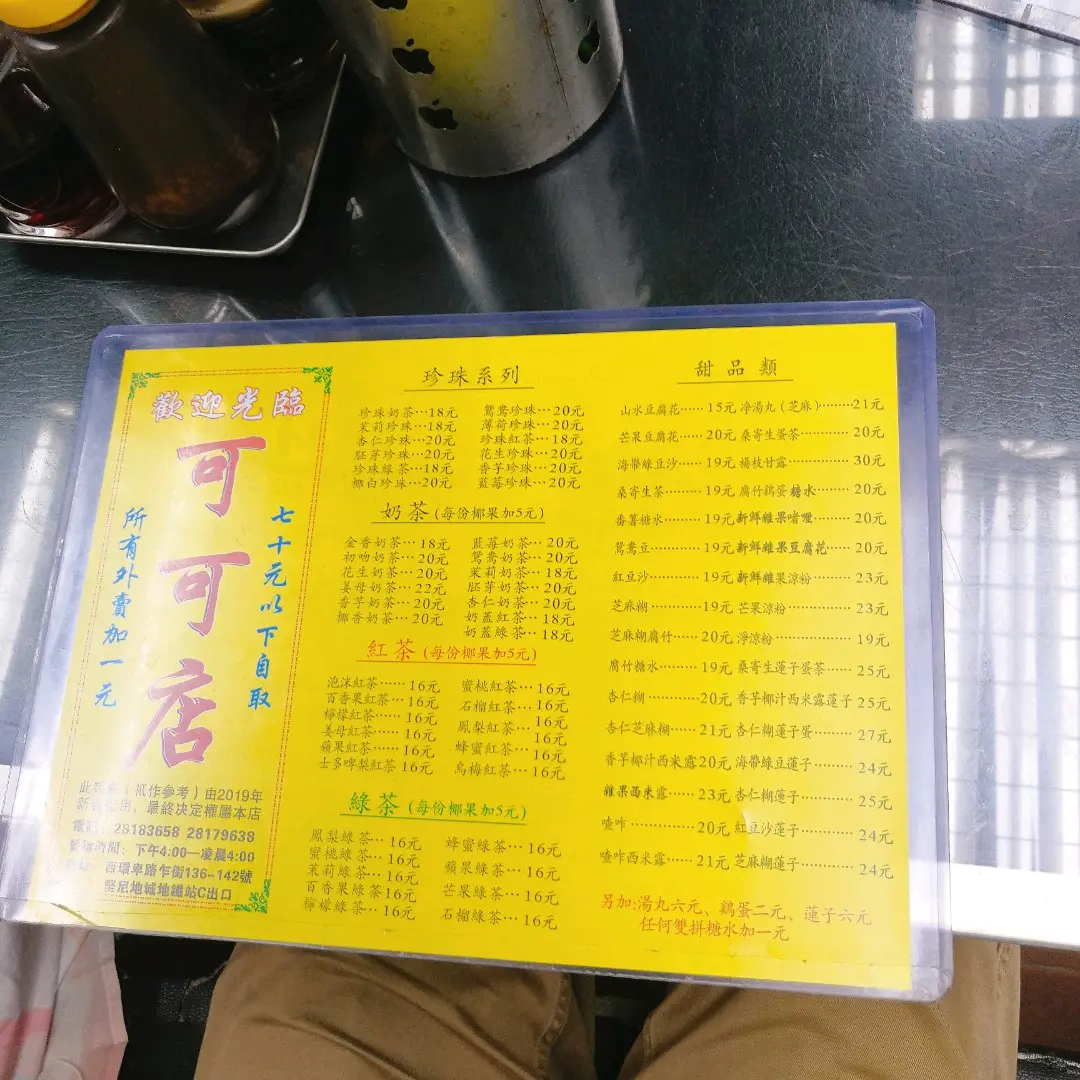 歡迎光臨
可可店
七十元以下自取
所有外賣加一元
祇作參考）由2019年
最終決定權屬本店
28183658 28179638
時間：下午4:00—凌晨4:00
西環卑路乍街136-142號
堅尼地城地鐵站C出口
珍珠系列
珍珠奶茶…18元 鴛鴦珍珠…20元
茉莉珍珠…18元 薄荷珍珠…20元
杏仁珍珠…20元 珍珠紅茶…18元
胚芽珍珠…20元 花生珍珠…20元
珍珠綠茶…18元 香芋珍珠…20元
椰白珍珠…20元 藍莓珍珠…20元
奶茶（每份椰果加5元）
金香奶茶…18元 藍莓奶茶…20元
初吻奶茶…20元 鴛鴦奶茶…20元
花生奶茶…20元 茉莉奶茶…18元
姜母奶茶…22元 胚芽奶茶…20元
香芋奶茶…20元 杏仁奶茶…20元
椰香奶茶…20元 奶蓋紅茶…18元
奶蓋綠茶…18元
紅茶（每份椰果加5元）
泡沫紅茶……16元 蜜桃紅茶…16元
百香果紅茶…16元 石榴紅茶…16元
檸檬紅茶……16元 鳳梨紅茶…16元
姜母紅茶……16元 16元
蘋果紅茶……16元 蜂蜜紅茶…16元
士多啤梨紅茶 16元 烏梅紅茶…16元
綠茶（每份椰果加5元）
鳳梨綠茶…16元 蜂蜜綠茶…16元
蜜桃綠茶…16元 蘋果綠茶…16元
茉莉綠茶…16元 芒果綠茶…16元
百香果綠茶16元 石榴綠茶…16元
檸檬綠茶…16元
甜品類
山水豆腐花……15元 净湯丸（芝麻）………21元
芒果豆腐花……20元 桑寄生蛋茶…………20元
海帶綠豆沙……19元 楊枝甘露……………30元
桑寄生茶………19元 腐竹鷄蛋糖水………20元
番薯糖水………19元 新鮮雜果啫喱………20元
鴛鴦豆…………19元 新鮮雜果豆腐花……20元
紅豆沙…………19元 新鮮雜果涼粉………23元
芝麻糊…………19元 芒果涼粉……………23元
芝麻糊腐竹……20元 淨涼粉………………19元
腐竹糖水………19元 桑寄生蓮子蛋茶……25元
杏仁糊…………20元 香芋椰汁西米露蓮子 25元
杏仁芝麻糊……21元 杏仁糊蓮子蛋………27元
香芋椰汁西米露20元 海帶綠豆蓮子………24元
雜果西米露……23元 杏仁糊蓮子…………25元
喳咋……………20元 紅豆沙蓮子…………24元
喳咋西米露……21元 芝麻糊蓮子…………24元
另加:湯丸六元、鷄蛋二元、蓮子六元
任何雙拼糖水加一元